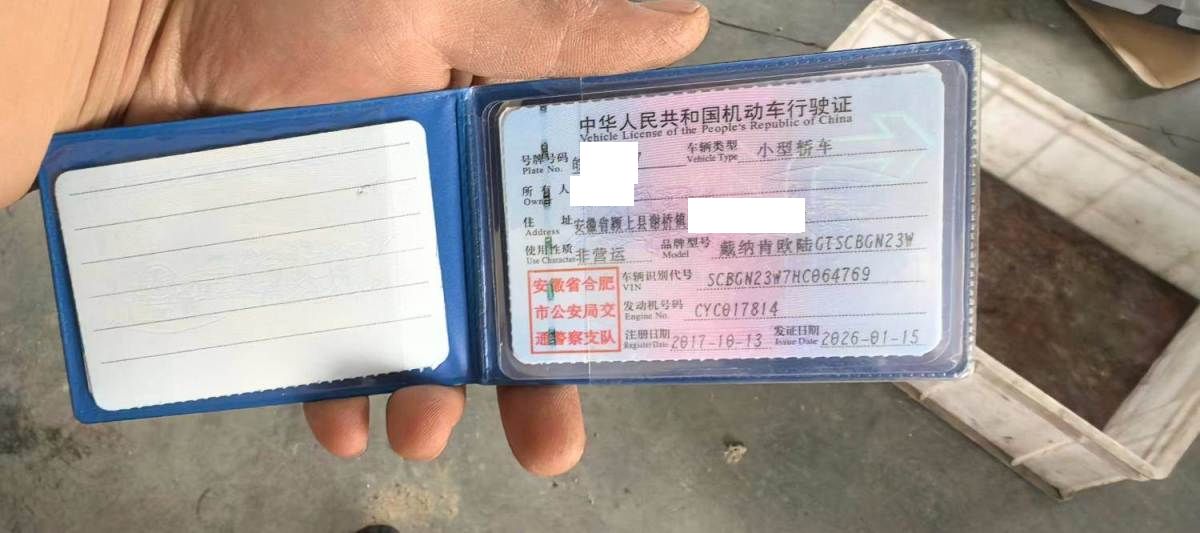 中华人民共和国机动车行驶证
Vehicle License of the People's Republic of China
号牌号码 7
Plate No.
车辆类型 小型轿车
Vehicle Type
所有人
Owner
住址 安徽省颍上县谢桥镇
Address
使用性质 非营运
Use Character
品牌型号 戴纳肯欧陆GTSCBGN23W
Model
安徽省合肥
市公安局交
通警察支队
车辆识别代号 SCBGN23W7HC064769
VIN
发动机号码 CYC017814
Engine No.
注册日期 2017-10-13
Register Date
发证日期 2026-01-15
Issue Date